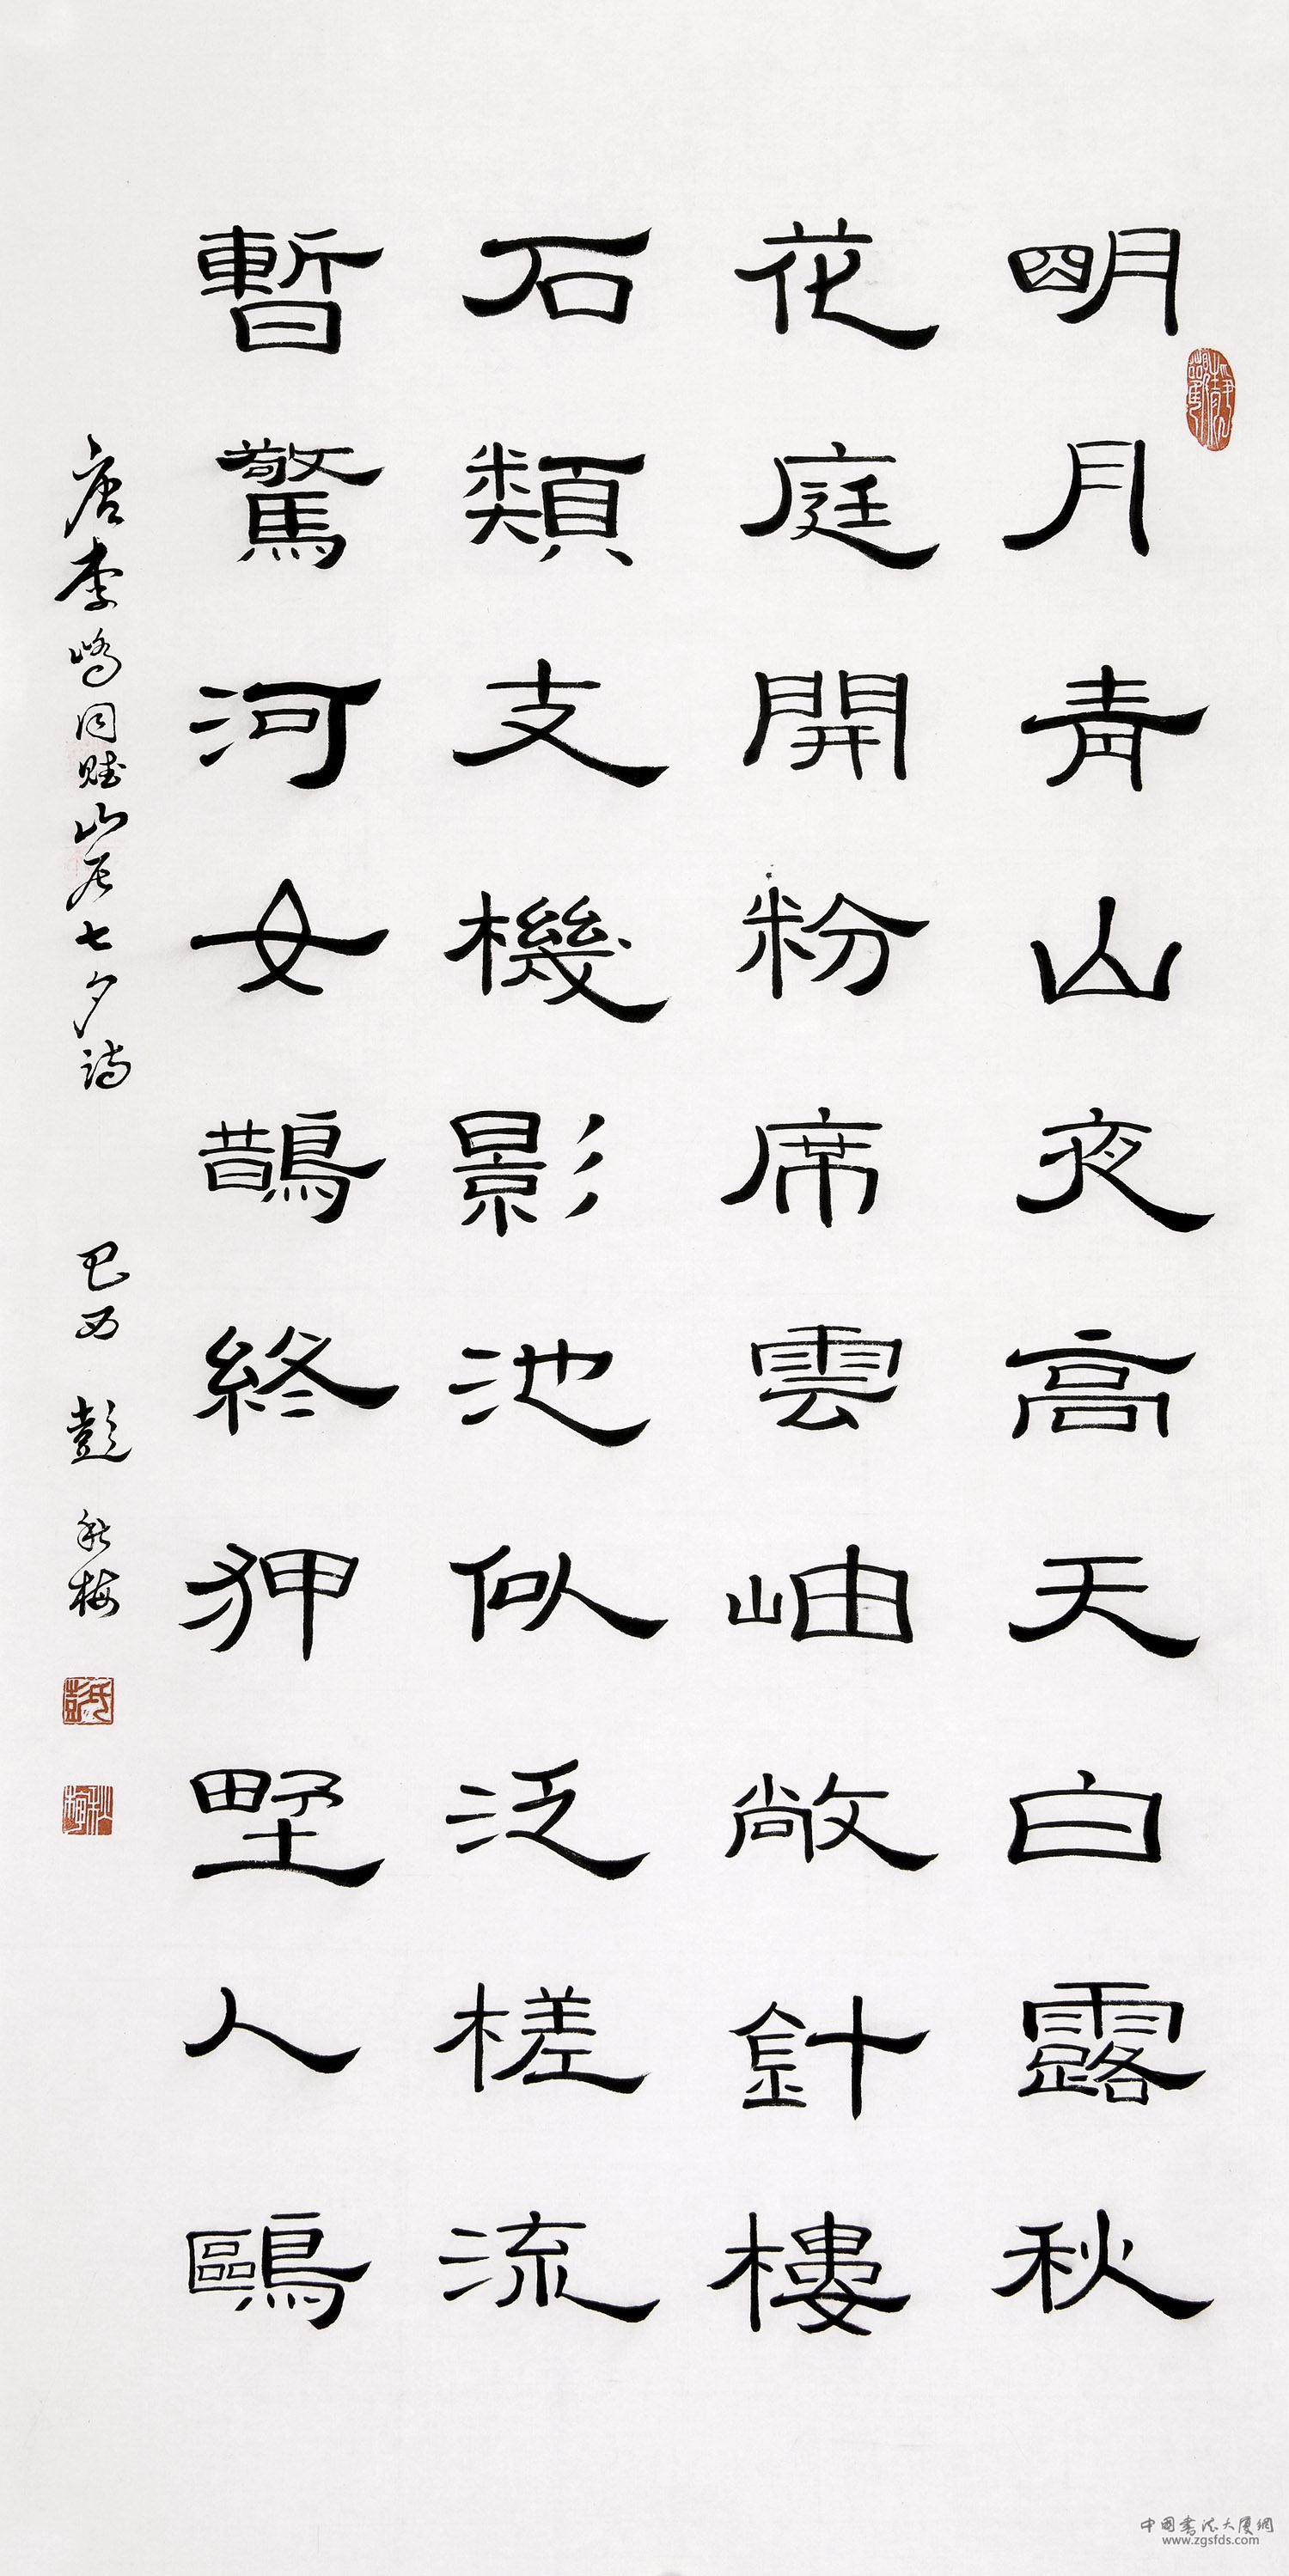 明月青山夜高天白露秋
花庭開粉席雲岫敞針樓
石類支機影池似泛槎流
暫驚河女鵲終狎野人鷗
唐李嶠同賦山居七夕詩 彭秋梅
彭氏
秋梅
中国書法大厦網
www.zgsfds.com